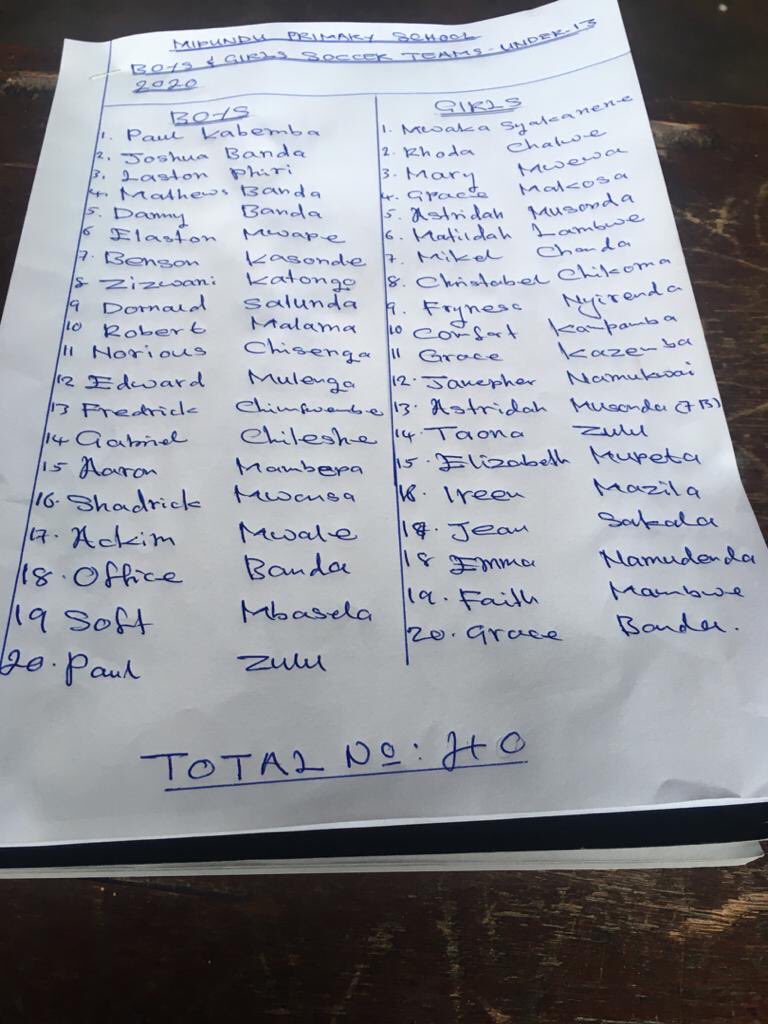 MIPUNDU PRIMARY SCHOOL
BOYS & GIRLS SOCCER TEAMS - UNDER-13
2020
BOYS
1. Paul Kabemba
2. Joshua Banda
3. Laston Phiri
4. Mathews Banda
5. Danny Banda
6 Elaston Mwape
7. Benson Kasonde
8 Zizwani Katongo
9 Dornald Salunda
10 Robert Malama
11 Norious Chisenga
12 Edward Mulenga
13 Fredrick Chimfwembe
14 Gabriel Chileshe
15 Aaron Mambepa
16. Shadrick Mwansa
17. Ackim Mwale
18. Office Banda
19 Soft Mbasela
20. Paul Zulu
GIRLS
1. Mwaka Syakanene
2. Rhoda Chalwe
3. Mary Mwewa
4. Grace Makosa
5. Astridah Musonda
6. Matildah Lambwe
7. Mikel Chanda
8. Christabel Chikoma
9. Fryness Nyirenda
10 Comfort Kampamba
11 Grace Kazemba
12. Janepher Namukwai
13. Astridah Musonda (7B)
14. Taona Zulu
15. Elizabeth Mupeta
16. Ireen Mazila
17. Jean Sakala
18 Emma Namudenda
19. Faith Mambwe
20. Grace Banda.
TOTAL No: 40